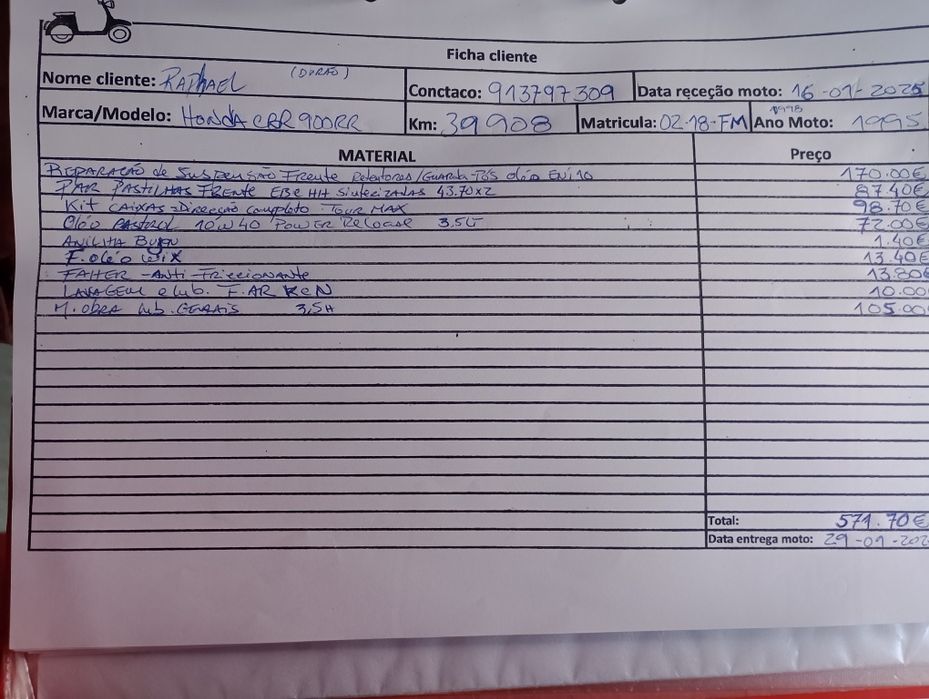 Ficha cliente
Nome cliente: RAPHAEL (DURÃO)
Conctaco: 913797309
Data receção moto: 16-01-2025
Marca/Modelo: HONDA CBR 900RR
Km: 39908
Matricula: 02-18-FM
1998
Ano Moto: 1995
MATERIAL Preço
REPARAÇÃO de SUSPENSÃO Frente Retentores/Guarda-Pós oléo ENI 10 170.00€
PAR PASTILHAS FRENTE EBC HH Sinterizadas 43.70x2 87.40€
Kit CAIXAS-Direcção completo TOUR MAX 98.70€
Oléo 10W40 POWER Release 3,5LT 72.00€
ANILHA Bujão 1.40€
F. oléo WIX 13.40€
-Anti-Friccionante 13.80€
LAVAGEM e lub. F. AR K&N 10.00
M. OBRA lub. GERAIS 3,5H 105.00
Total: 571.70€
Data entrega moto: 29-01-202